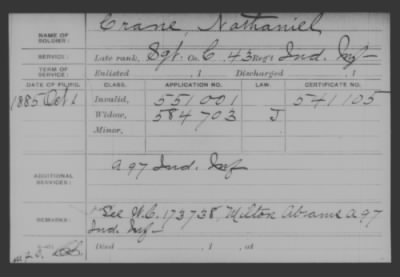 NAME OF SOLDIER: Crane, Nathaniel
SERVICE: Late rank, Sgt. Co. C, 43 Reg't Ind. Inf
TERM OF SERVICE: Enlisted , 1 Discharged , 1
DATE OF FILING. CLASS. APPLICATION NO. LAW. CERTIFICATE NO.
1885 Oct 1 Invalid, 551001 541105
Widow, 584703 J
Minor,
ADDITIONAL SERVICES: A 97 Ind. Inf
REMARKS: See W.C. 173738, Milton Abrams A 97
Ind. Inf
Died , 1 , at